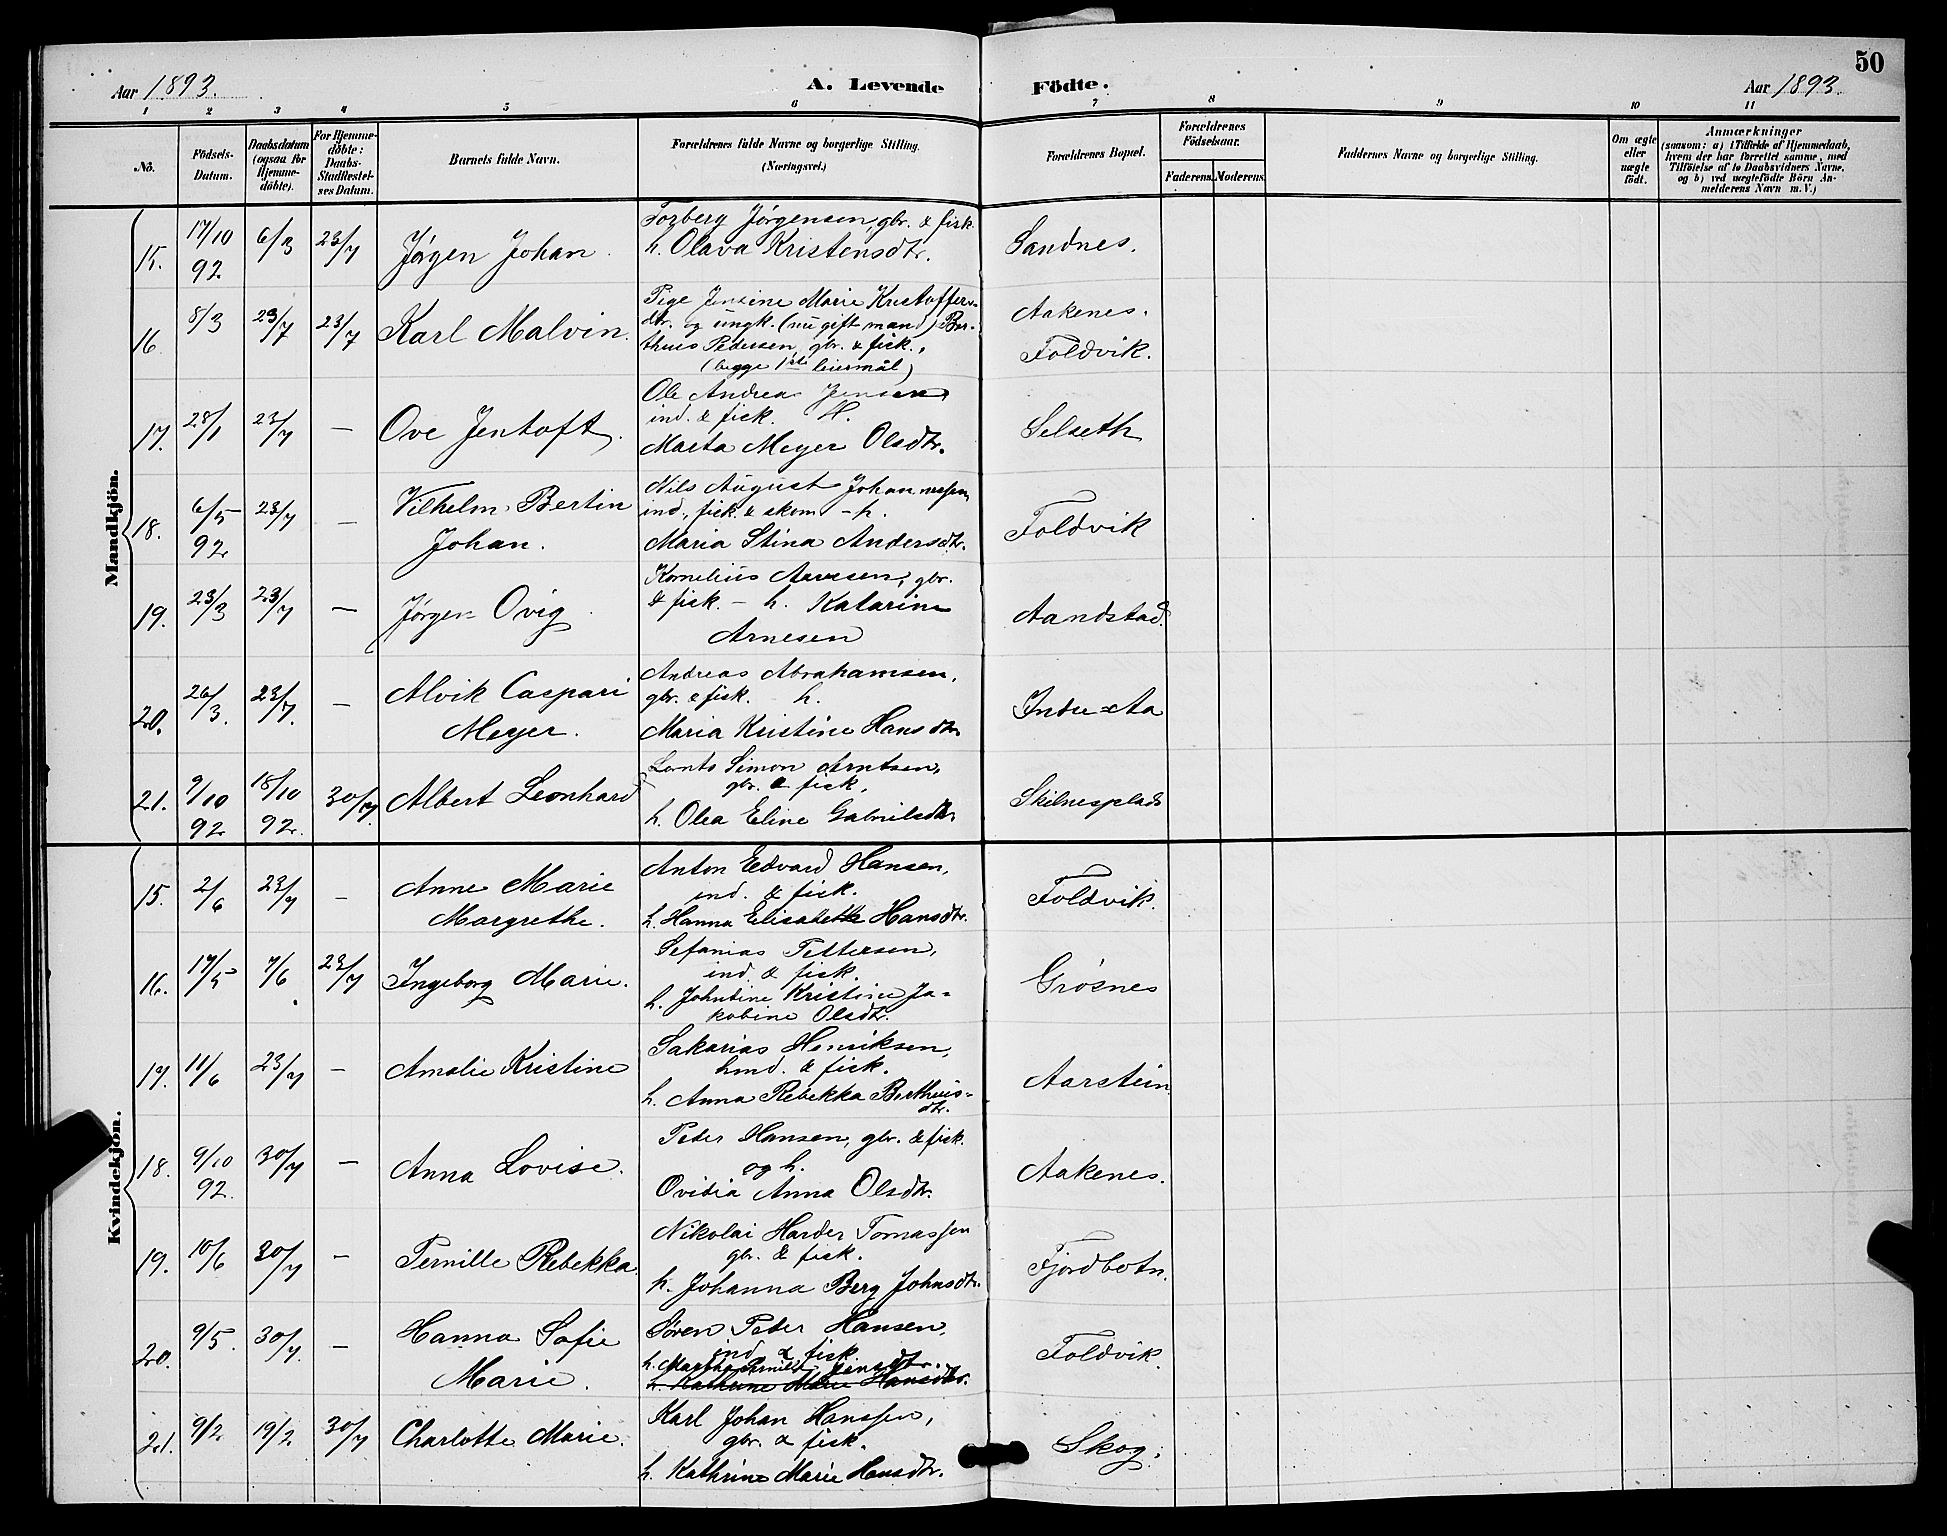 50
Aar 1893. A. Levende Födte. Aar 1893.
1 2 3 4 5 6 7 8 9 10 11
No. Födsels-Datum. Daabsdatum (ogsaa for Hjemmedöbte). For Hjemmedöbte: Daabs-Stadfæstelses Datum. Barnets fulde Navn. Forældrenes fulde Navne og borgerlige Stilling. (Næringsvei.) Forældrenes Bopæl. Forældrenes Födselsaar. Faderens. Moderens. Faddernes Navne og borgerlige Stilling. Om ægte eller uægte födt. Anmærkninger (saasom: a) i Tilfælde af Hjemmedaab, hvem der har forrettet samme, med Tilföielse af to Daabsvidners Navne, og b) ved uægtefödte Börn Anmelderens Navn m. V.)
Mandkjön.
15. 17/10 92 6/3 23/7 Jørgen Johan. Torberg Jørgensen, gbr. & fisk.
h. Olava Kristensdtr. Sandnes.
16. 8/3 23/7 23/7 Karl Malvin. Pige Jensine Marie Kristoffers-
dtr. og ungk. (nu gift mand) Ber-
theus Pedersen, gbr. & fisk.,
(begge 1ste leiermål) Aakenes.
Foldvik.
17. 28/1 23/7 — Ove Jentoft. Ole Andreas Jensen,
ind. & fisk. H.
Marta Meyer Olsdtr. Selseth
18. 6/5 92 23/7 — Vilhelm Bertin
Johan. Nils August Johannessen,
ind., fisk. & skom - h.
Maria Stina Andersdtr. Foldvik
19. 23/3 23/7 — Jørgen Ovig. Kornelius Arnesen, gbr.
& fisk. - h. Katarina
Arnesen Aandstad.
20. 26/3. 23/7. — Alvik Caspari
Meyer. Andreas Abrahamsen,
gbr. & fisk. - h.
Maria Kristine Hansdtr. Indre-Aa
21. 9/10 92 18/10 92. 30/7. Albert Leonhard Lornts Simon Arntsen,
gbr. & fisk.
h. Olea Eline Gabrielsdtr. Skilnesplads
Kvindekjön.
15. 2/6 23/7 - Anne Marie
Margrethe. Anton Edvard Hansen,
ind. & fisk.
h. Hanna Elisabeth Hansdtr. Foldvik.
16. 17/5 7/6 23/7 Ingeborg Marie. Sefanias Pettersen,
ind. & fisk.
h. Johntine Kristine Ja-
kobine Olsdtr. Grøsnes
17. 11/6 23/7 - Amalie Kristine Sakarias Henriksen,
hmd. & fisk.
h. Anna Rebekka Bertheus-
dtr. Aarstein.
18. 9/10 92. 30/7 — Anna Lovise. Peder Hansen, gbr. & fisk.
og h.
Ovidia Anna Olsdtr. Aakenes.
19. 10/6 30/7 - Pernille Rebekka. Nikolai Harder Tomassen
gbr. & fisk.
h. Johanna Berg Johnsdtr. Fjordbotn.
20. 9/5. 30/7. - Hanna Sofie
Marie. Søren Peder Hansen,
ind. & fisk.
h. Martha Pernille Jensdtr.
h. Kathrine Marie Hansdtr. Foldvik.
21. 9/2. 19/2. 30/7 Charlotte Marie. Karl Johan Hanssen,
gbr. & fisk.
h. Kathrine Marie Hansdtr. Skog.